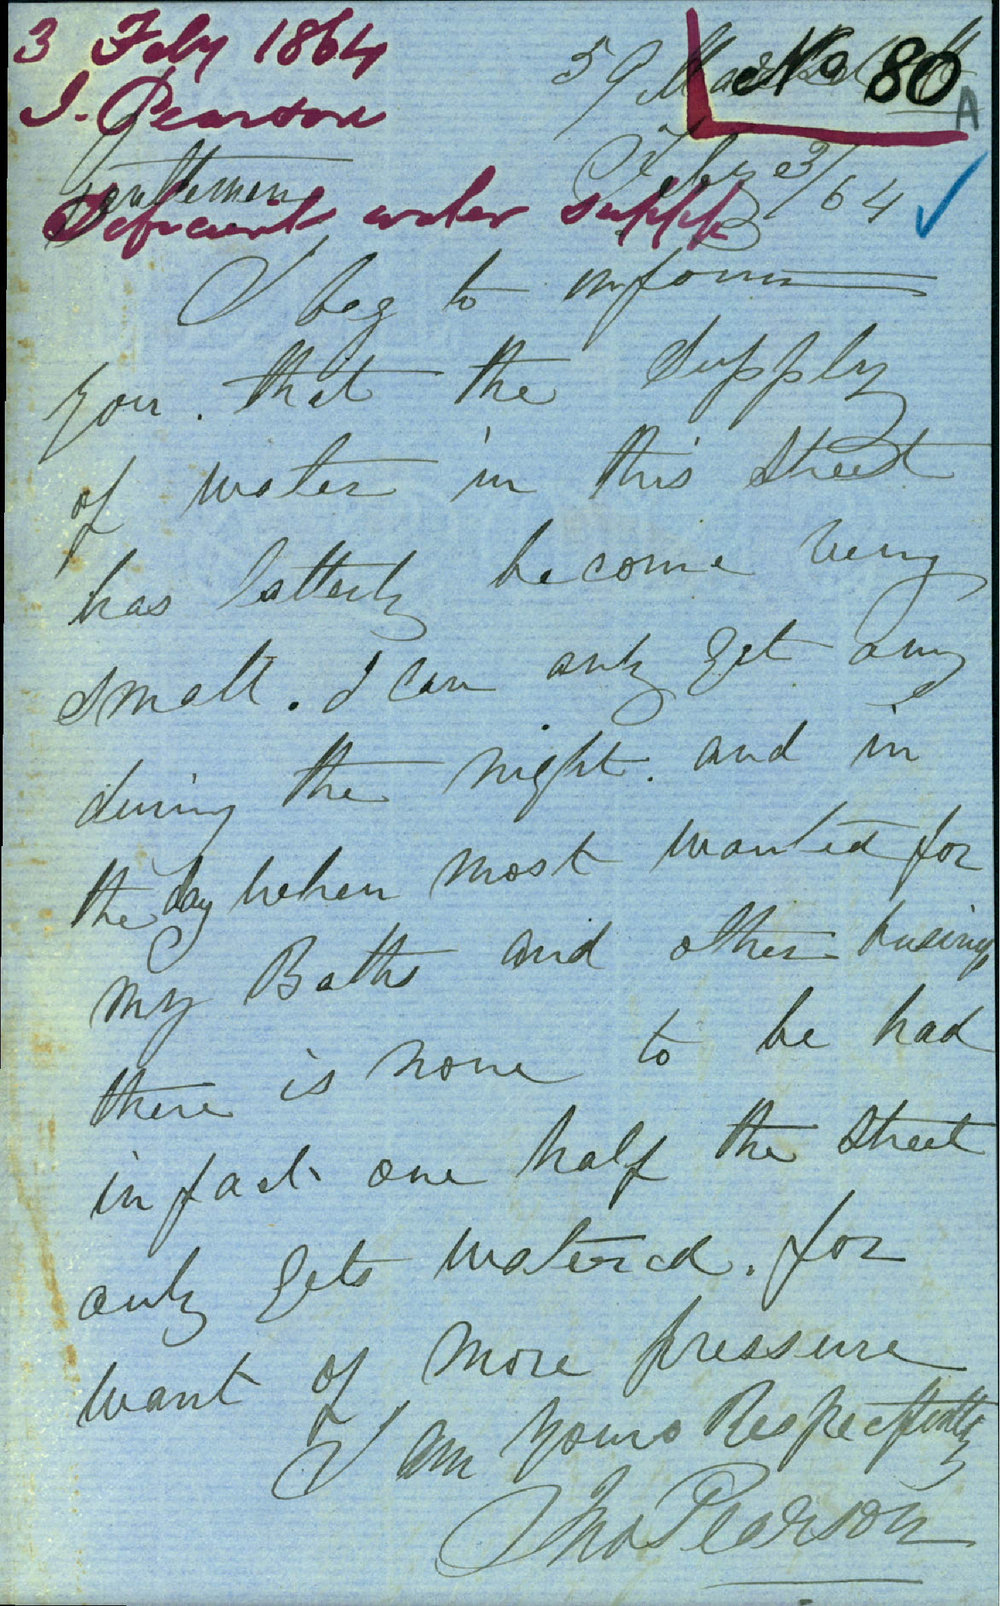 3 Feby 1864
J. Pearson
No 80
A
59 Market St
Feby 3/64
Gentlemen
Deficient water supply
I beg to inform
you . that the supply
of water in this street
has latterly become very
small . I can only get any
during the night . and in
the day when most wanted for
my Baths and other business
there is none to be had
in fact one half the street
only gets watered . for
want of more pressure
I am yours Respectfully
Thos Pearson